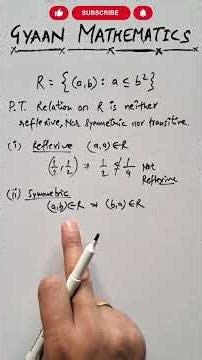 SUBSCRIBE
GYAAN MATHEMATICS
R = {(a,b) : a ≤ b²}
P.T. Relation on R is neither
reflexive, Nor symmetric nor transitive
(i) Reflexive (a,a) ∈ R
(1/2, 1/2) → 1/2 ≰ 1/4 Not
Reflexive
(ii) Symmetric
(a,b) ∈ R → (b,a) ∈ R